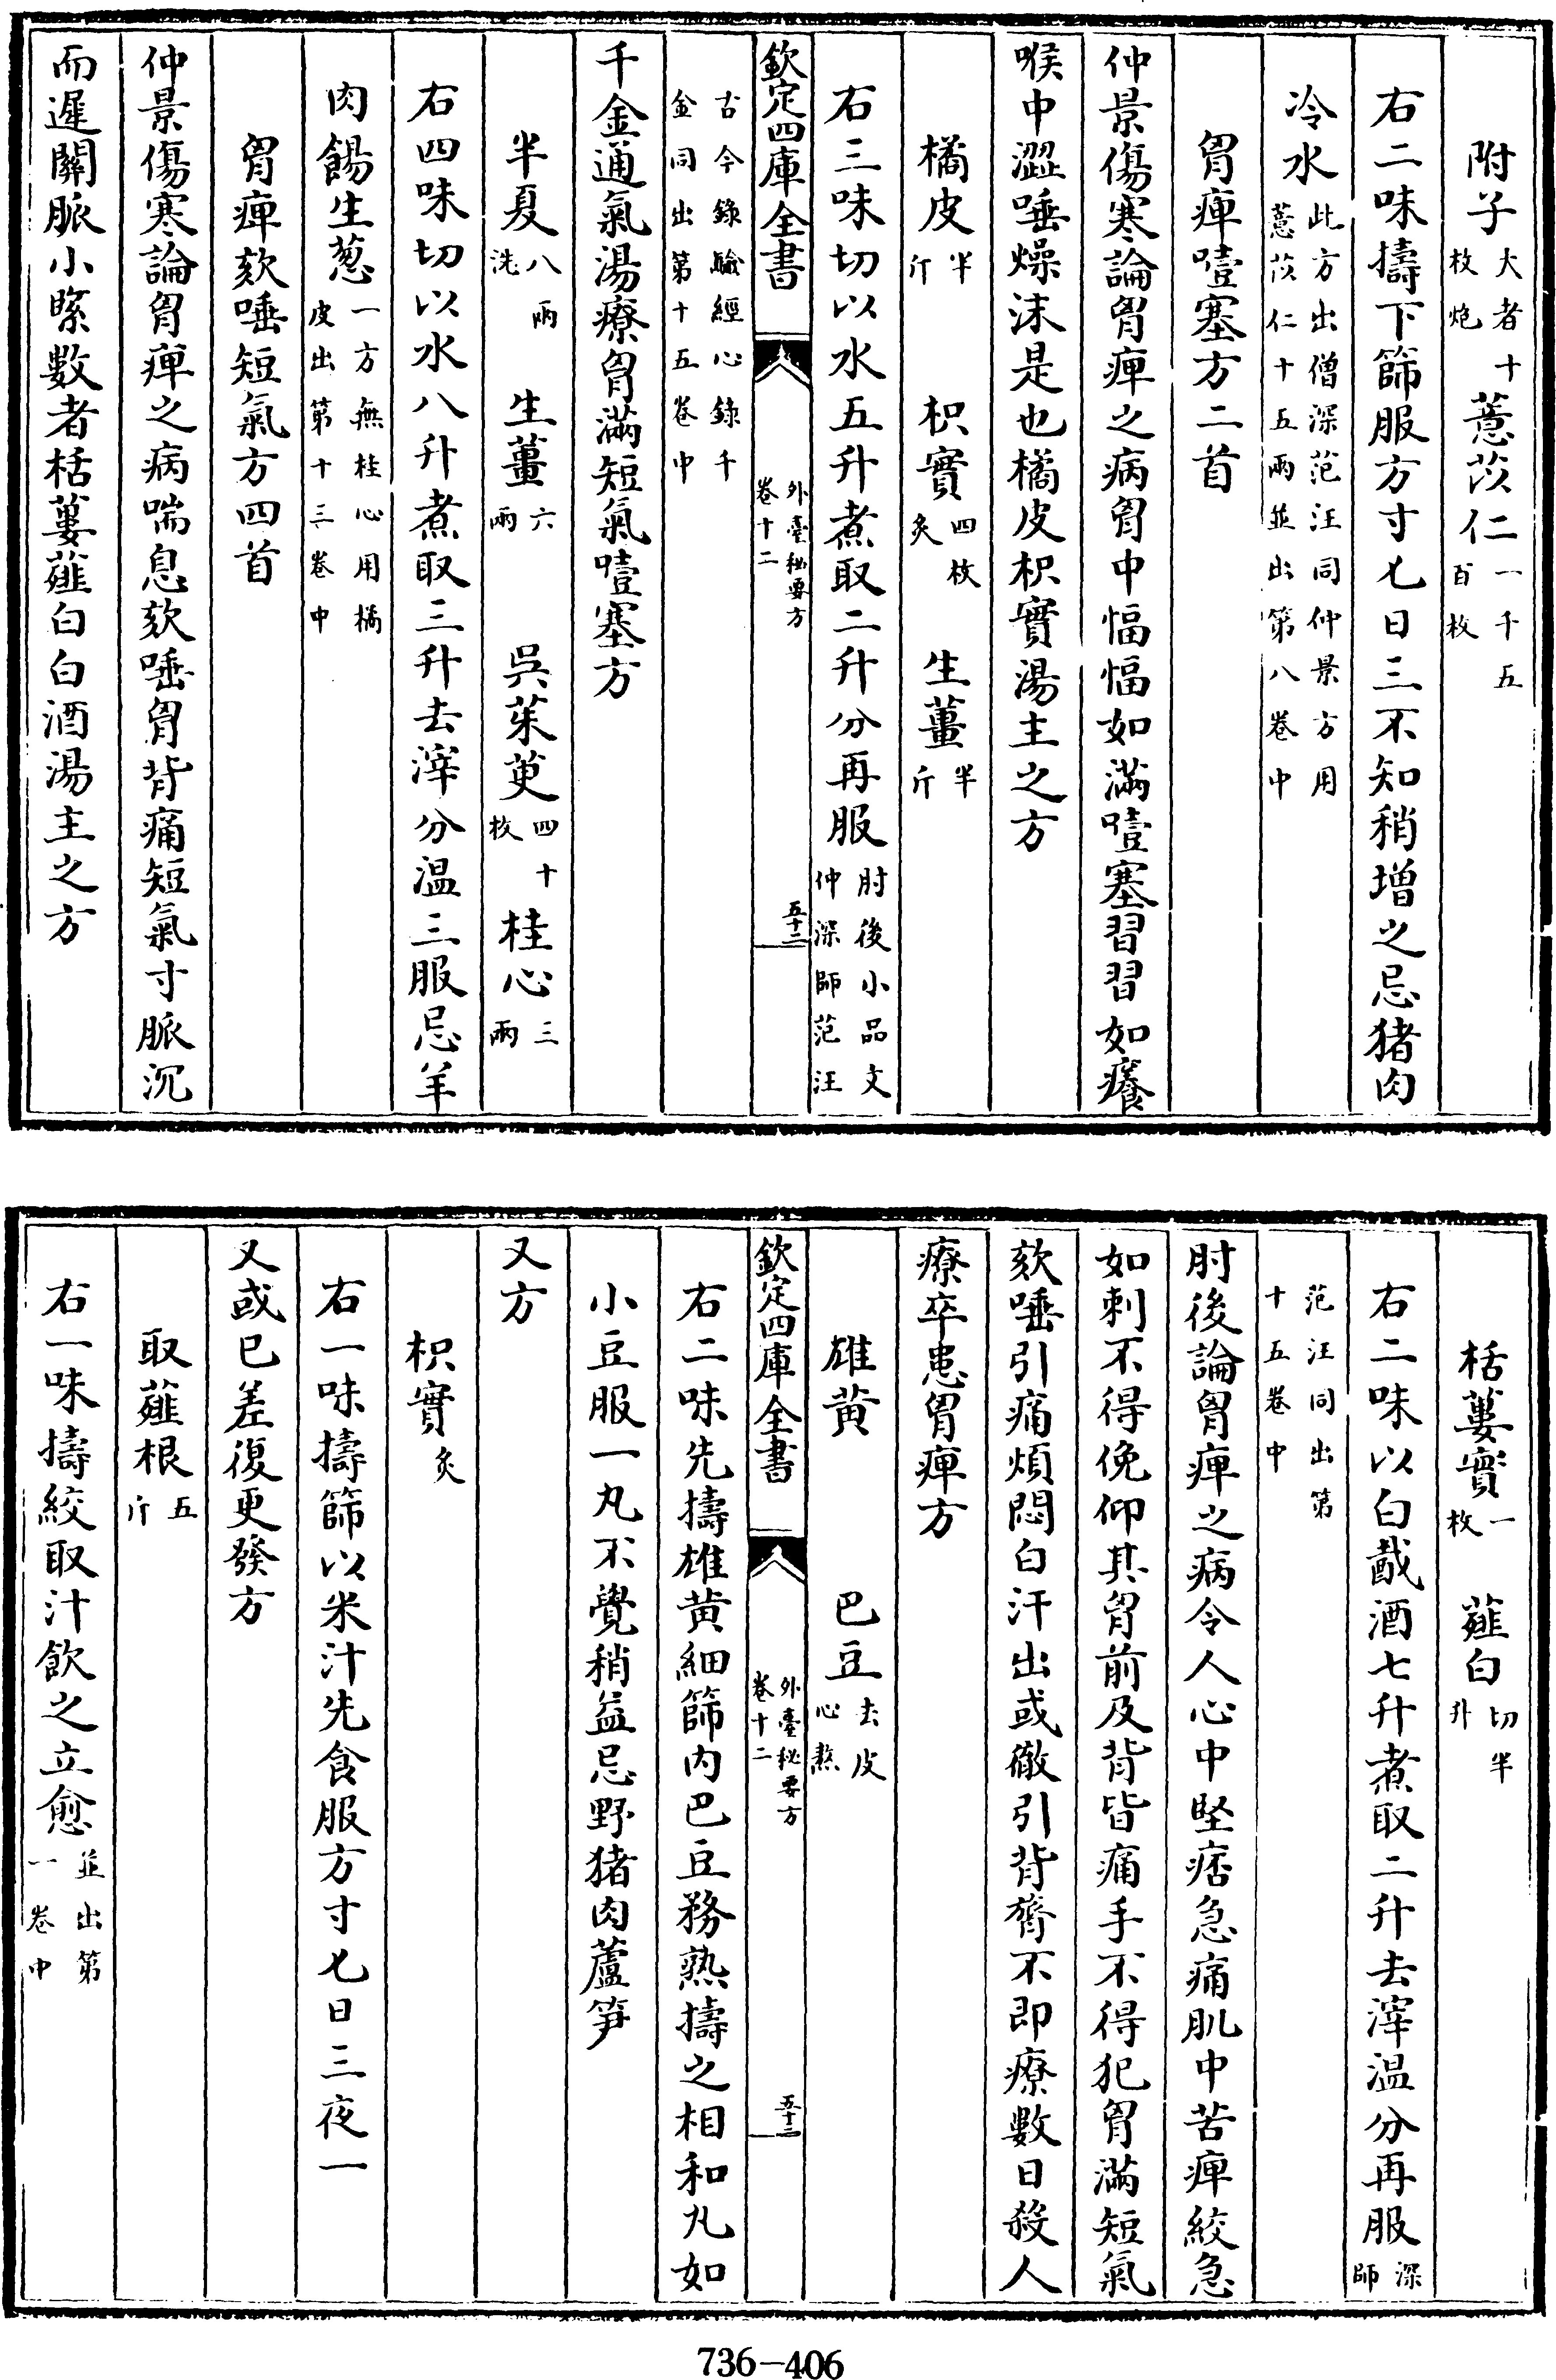 附子大者十枚炮薏苡仁一千五百枚
右二味擣下篩服方寸匕日三不知稍增之忌猪肉
冷水此方出僧深范汪同仲景方用薏苡仁十五兩並出第八卷中
胷痺噎塞方二首
仲景傷寒論胷痺之病胷中愊愊如滿噎塞習習如癢
喉中澀唾燥沫是也橘皮枳實湯主之方
橘皮半斤 枳實四枚炙 生薑半斤
右三味切以水五升煮取二升分再服肘後小品文仲深師范汪
欽定四庫全書 外臺秘要方卷十二 五十二
古今錄驗經心錄千金同出第十五卷中
千金通氣湯療胷滿短氣噎塞方
半夏八兩洗 生薑六兩 吳茱萸四十枚 桂心三兩
右四味切以水八升煮取三升去滓分温三服忌羊
肉餳生葱一方無桂心用橘皮出第十三卷中
胷痺欬唾短氣方四首
仲景傷寒論胷痺之病喘息欬唾胷背痛短氣寸脈沉
而遲關脈小緊數者栝蔞薤白白酒湯主之方
栝蔞實一枚 薤白切半升
右二味以白酨酒七升煮取二升去滓温分再服深師
范汪同出第十五卷中
肘後論胷痺之病令人心中堅痞急痛肌中苦痺絞急
如刺不得俛仰其胷前及背皆痛手不得犯胷滿短氣
欬唾引痛煩悶白汗出或徹引背膂不即療數日殺人
療卒患胷痺方
雄黄 巴豆去皮心熬
欽定四庫全書 外臺秘要方卷十二 五十三
右二味先擣雄黄細篩内巴豆務熟擣之相和丸如
小豆服一丸不覺稍益忌野猪肉蘆笋
又方
枳實炙
右一味擣篩以米汁先食服方寸匕日三夜一
又或已差復更發方
取薤根五斤
右一味擣絞取汁飲之立愈並出第一卷中
736-406